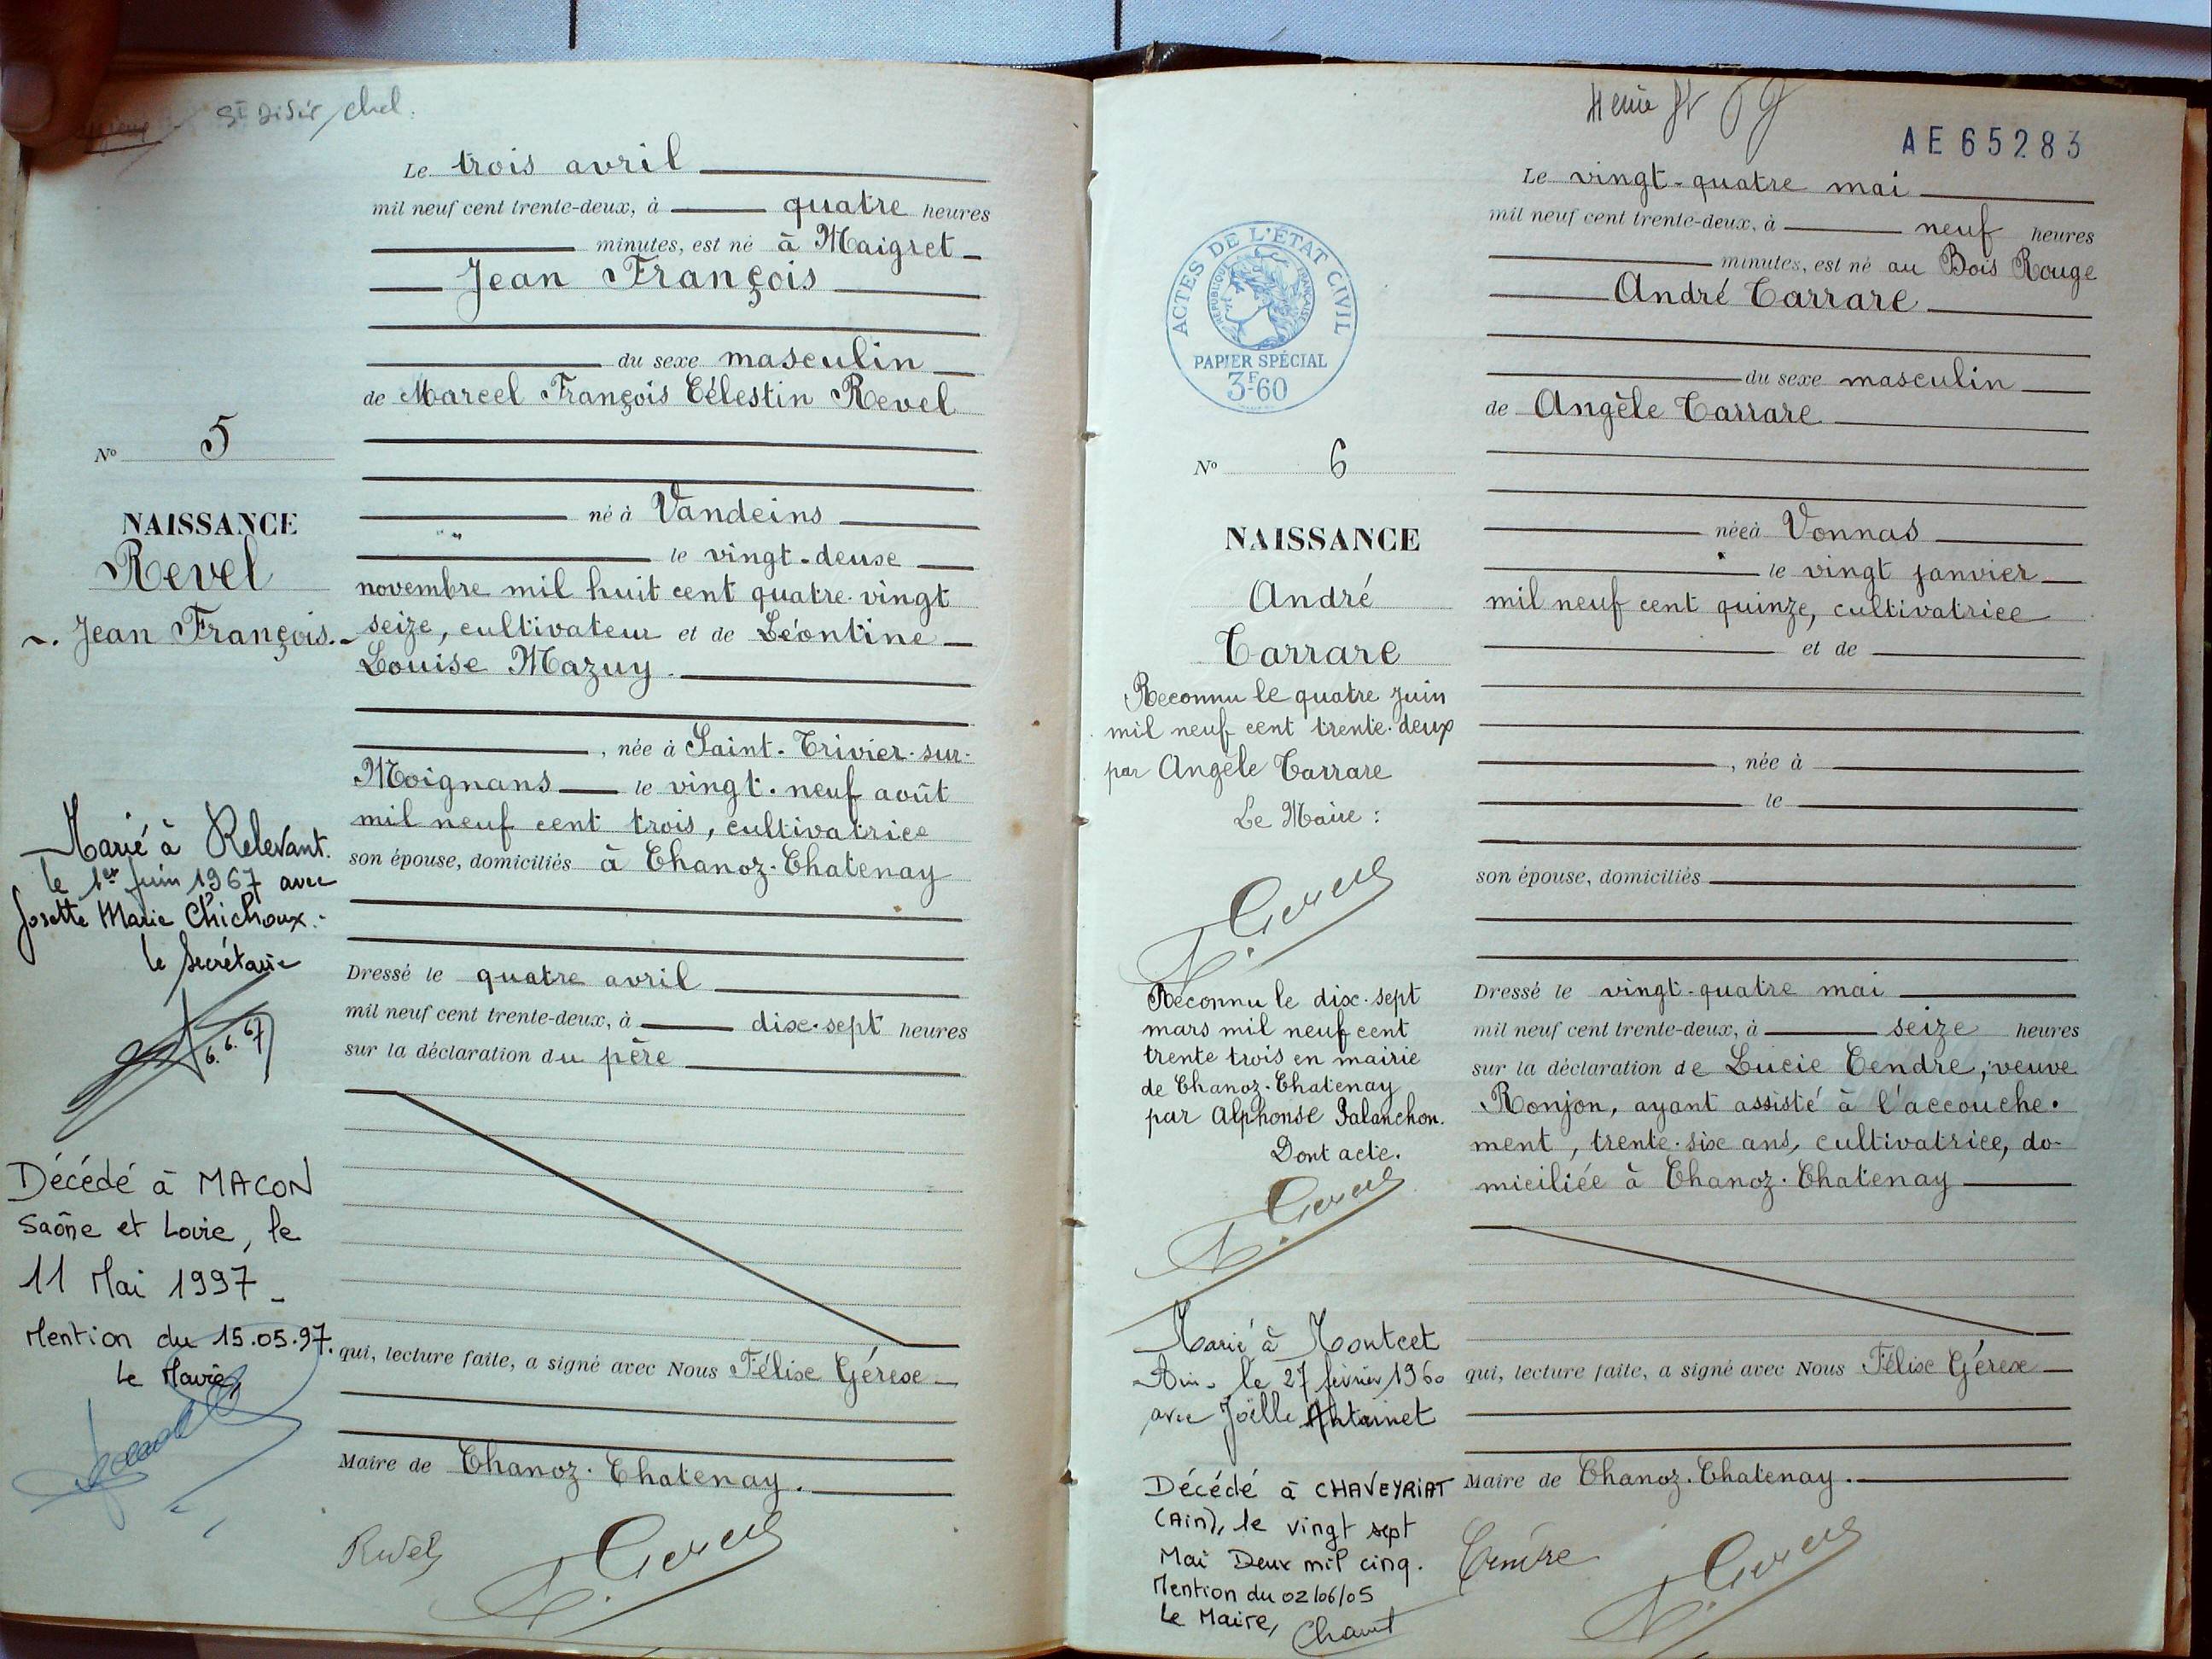 St Didier / Chal.
Le trois avril
mil neuf cent trente-deux, à quatre heures
minutes, est né à Maigret
Jean François
du sexe masculin
de Marcel François Célestin Revel
né à Vandeins
le vingt-deux
novembre mil huit cent quatre-vingt
seize, cultivateur et de Léontine
Louise Mazuy.
, née à Saint-Trivier-sur-
Moignans le vingt-neuf août
mil neuf cent trois, cultivatrice
son épouse, domiciliés à Chanoz-Chatenay
Dressé le quatre avril
mil neuf cent trente-deux, à dix-sept heures
sur la déclaration du père
qui, lecture faite, a signé avec Nous Félix Gérex
Maire de Chanoz-Chatenay.
Revel
Nº 5
NAISSANCE
Revel
Jean François.
Marié à Relevant.
le 1er Juin 1967 avec
Josette Marie Chichoux.
le Secrétaire
6.6.67
Décédé à MACON
Saône et Loire, le
11 Mai 1997
Mention du 15.05.97.
Le Maire,
AE65283
Le vingt-quatre mai
mil neuf cent trente-deux, à neuf heures
minutes, est né au Bois Rouge
André Carrare
du sexe masculin
de Angèle Carrare
née à Vonnas
le vingt janvier
mil neuf cent quinze, cultivatrice
et de
, née à
le
son épouse, domiciliés
Dressé le vingt-quatre mai
mil neuf cent trente-deux, à seize heures
sur la déclaration de Lucie Cendre, veuve
Ronjon, ayant assisté à l'accouche-
ment, trente-six ans, cultivatrice, do-
miciliée à Chanoz-Chatenay
qui, lecture faite, a signé avec Nous Félix Gérex
Maire de Chanoz-Chatenay.
Cendre
ACTES DE L'ÉTAT CIVIL
RÉPUBLIQUE FRANÇAISE
PAPIER SPÉCIAL
3F60
Nº 6
NAISSANCE
André
Carrare
Reconnu le quatre juin
mil neuf cent trente-deux
par Angèle Carrare
Le Maire :
Reconnu le dix-sept
mars mil neuf cent
trente trois en mairie
de Chanoz-Chatenay
par Alphonse Palanchon.
Dont acte.
Marié à Montcet
Ain. le 27 février 1960
avec Joëlle Antoinet
Décédé à CHAVEYRIAT
(Ain), le vingt sept
Mai Deux mil cinq.
Mention du 02/06/05
Le Maire,